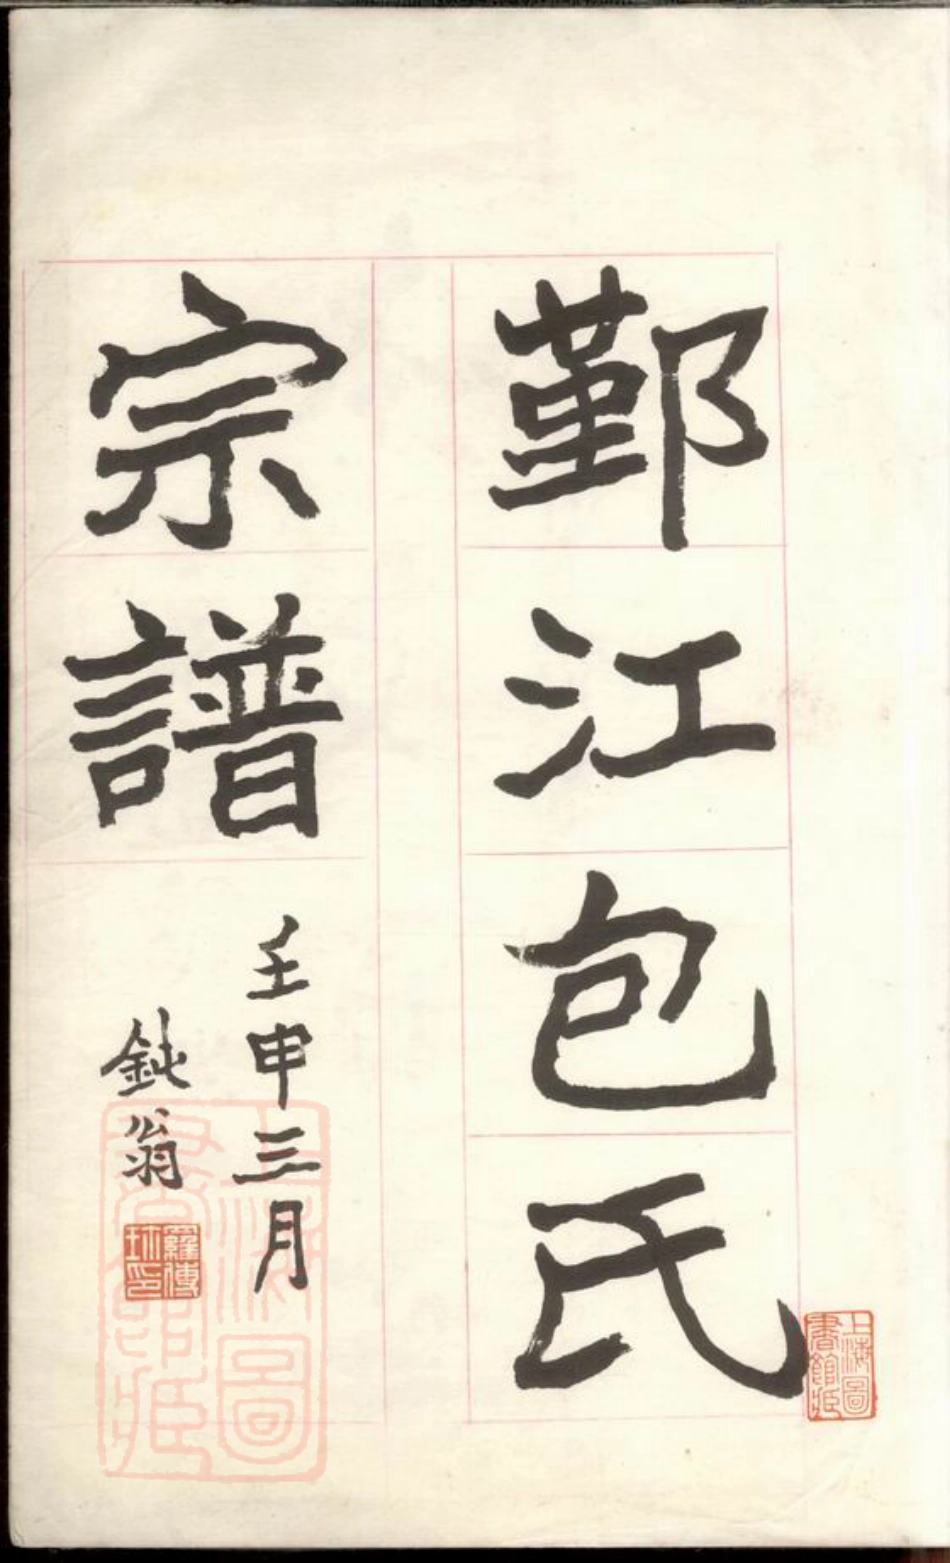 鄞江包氏
宗譜
壬申三月
鈍翁
羅傳珍印
上海圖書館藏
上海圖書館藏